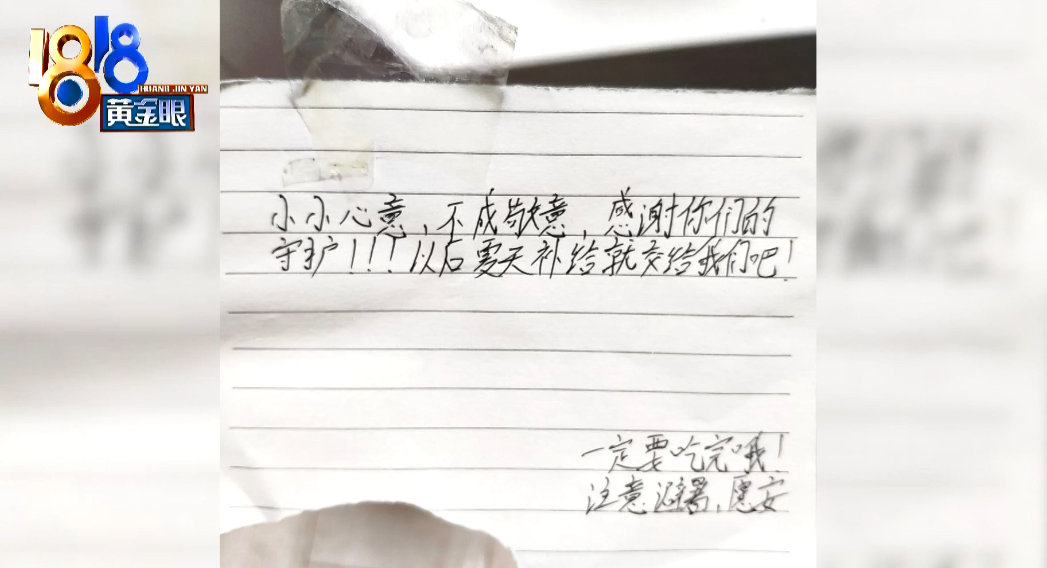 1818
HUANG JIN YAN
黄金眼
小小心意，不成敬意，感谢你们的
守护！！！以后夏天补给就交给我们吧！
一定要吃完哦！
注意避暑，愿安